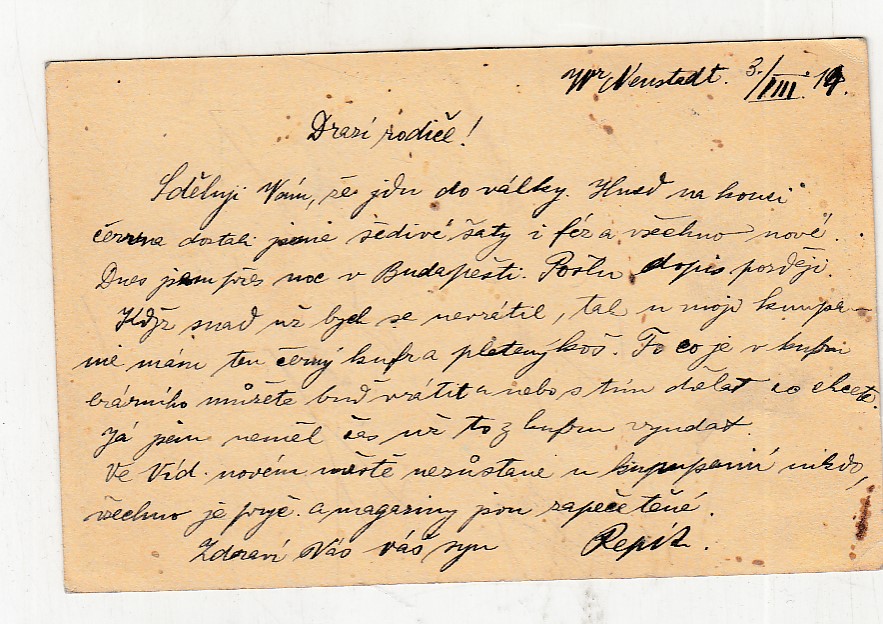 Wr Neustadt. 3./VIII. 14.
Drazí rodiče!
Sděluji Vám, že jdu do války. Hned na konci
června dostali jsme šedivé šaty i féz a všechno nové.
Dnes jsem přes noc v Budapešti. Poslu dopis později.
Když snad už bych se nevrátil, tak u moji kumpa-
nie mám ten černý kufr a pletený koš. To co je v kufru
erárního můžete buď vrátit nebo s tím dělat co chcete.
Já jsem neměl čas už to z kufru vyndat.
Ve Víd. novém městě nezůstane u kumpanii nikdo,
všechno je pryč a magaziny jsou zapečetěné.
Zdraví Vás váš syn